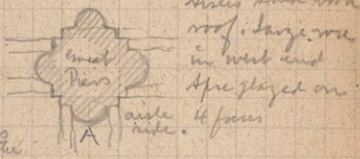 roof. Large rose
in west end
Apse glazed on
4 faces
great
Piers
aisle
side.
A